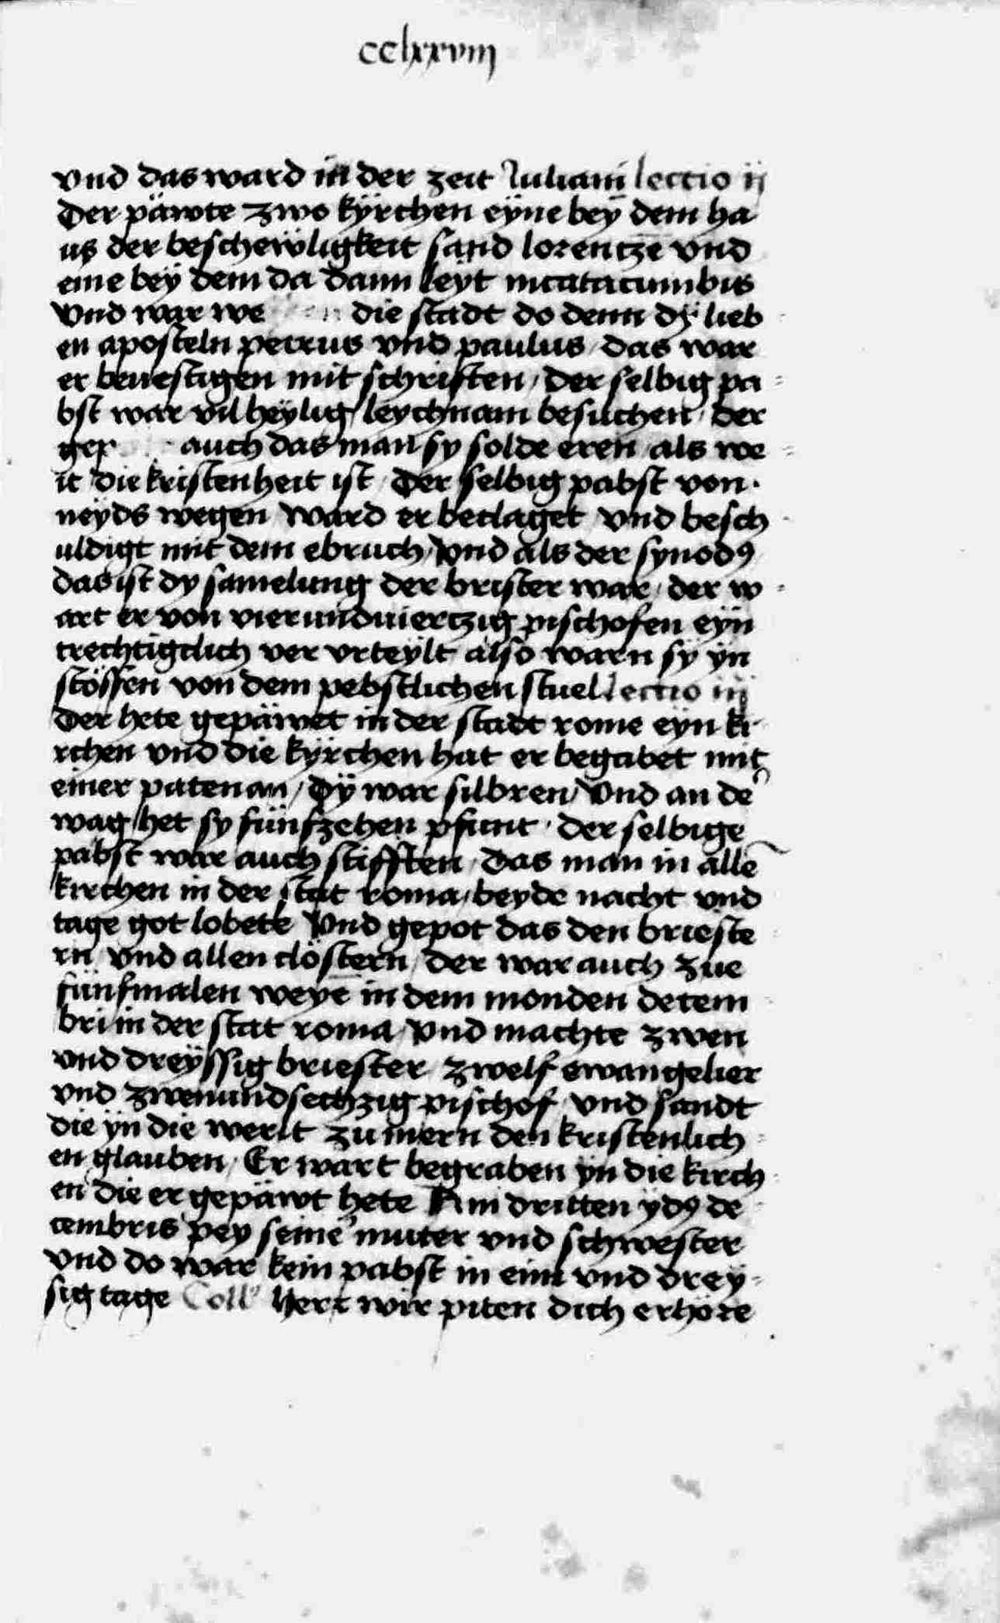 cclxxviij
vnd das ward in der zeit Iuliani lectio ij
Der päwte zwo kÿrchen eÿne beÿ dem ha
us der beschewligkeit sand lorentze vnd
eine beÿ dem da dann leyt incatacumbis
vnd war die stadt do denn dÿ lieb
en aposteln petrus vnd paulus / das war
er bevestigen mit schriften / Der selbig pa-
bst war vil heÿlig leychnam besuchen / der
auch das man sy solde eren als we-
it die kristenheit ist / Der selbig pabst von
neyds wegen ward er beclaget / vnd besch-
uldigt mit dem ebruch / Vnd als der synodꝯ
das ist dy samelung der brister war / der w-
art er von vierundviertzig pischofen eÿn
trechtigclich ver vrteÿlt also warn sÿ ÿn
stössen von dem pebstlichen stuel lectio iij
Der hete gepäwet in der stadt rome eÿn ki-
rchen vnd die kÿrchen hat er begabet mit
einer patenan / Dÿ war silbren / Vnd an de͂
wag het sy fünfzehen pfunt / der selbige
pabst war auch stifften / Das man in alle͂
kirchen in der stat roma / beyde nacht vnd
tage got lobete Vnd gepot das den brieste-
rn vnd allen clöstern / der war auch zue
fünfmalen weyt in dem monden decem-
bri in der stat roma / Vnd machte zwen
vnd dreÿssig briester / zwelf ewangelier
vnd zwenundsechzig pischof / vnd sandt
die ÿn die werlt zu mern den kristenlich-
en glauben / Er wart begraben ÿn die kirch-
en die er gepäwt hete Am dritten ydꝯ de
cembris pey seine͂ muter vnd schwester
vnd do war kein pabst in eim vnd drey-
sig tage Coll' Herr wir piten dich erhöre